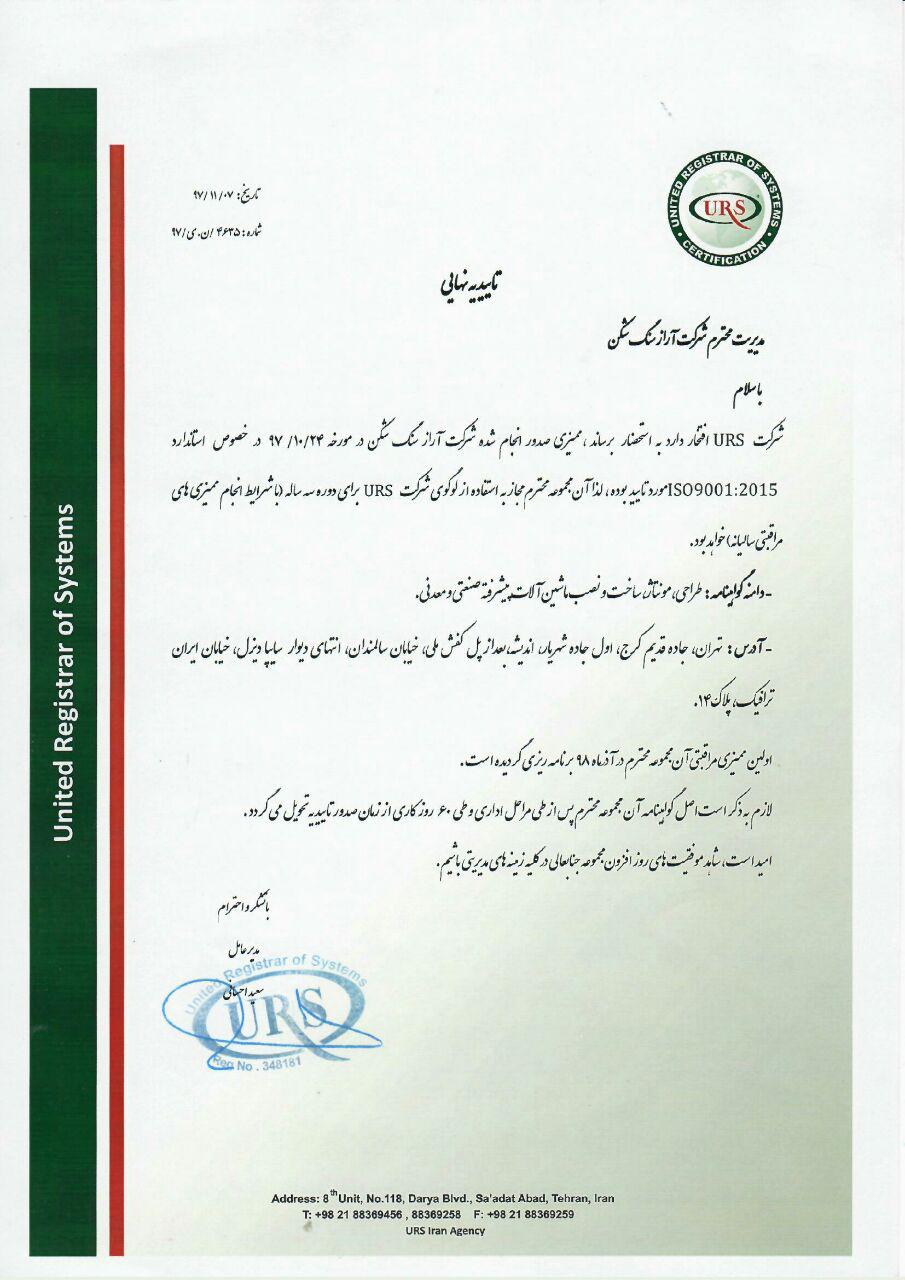 UNITED REGISTRAR OF SYSTEMS
URS
CERTIFICATION
تاریخ: ۹۷/۱۱/۰۷
شماره: ۴۶۳۵/ن.ی/۹۷
تاییدیه نهایی
مدیریت محترم شرکت آراز سنگ شکن
با سلام
شرکت URS افتخار دارد به استحضار برساند، ممیزی صدور انجام شده شرکت آراز سنگ شکن در مورخه ۹۷/۱۰/۲۴ در خصوص استاندارد
ISO9001:2015 مورد تایید بوده، لذا آن مجموعه محترم مجاز به استفاده از لوگوی شرکت URS برای دوره سه ساله (با شرایط انجام ممیزی های
مراقبتی سالیانه) خواهد بود.
-دامنه گواهینامه: طراحی، مونتاژ، ساخت و نصب ماشین آلات پیشرفته صنعتی و معدنی.
-آدرس: تهران، جاده قدیم کرج، اول جاده شهریار، اندیشه، بعد از پل کفش ملی، خیابان سالمندان، انتهای دیوار سایپا دیزل، خیابان ایران
ترافیک، پلاک ۱۴.
اولین ممیزی مراقبتی آن مجموعه محترم در آذر ماه ۹۸ برنامه ریزی گردیده است.
لازم به ذکر است اصل گواهینامه آن مجموعه محترم پس از طی مراحل اداری و طی ۶۰ روز کاری از زمان صدور تاییدیه تحویل می گردد.
امید است، شاهد موفقیت های روز افزون مجموعه جنابعالی در کلیه زمینه های مدیریتی باشیم.
با تشکر و احترام
مدیر عامل
سعید
United Registrar of Systems
URS
Reg No . 348181
United Registrar of Systems
Address: 8th Unit, No.118, Darya Blvd., Sa'adat Abad, Tehran, Iran
T: +98 21 88369456 , 88369258 F: +98 21 88369259
URS Iran Agency